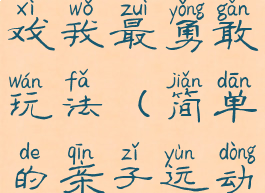 xì wǒ zuì yǒng gǎn
戏我最勇敢
wán fǎ jiǎn dān
玩法（简单
de qīn zǐ yùn dòng
的亲子运动